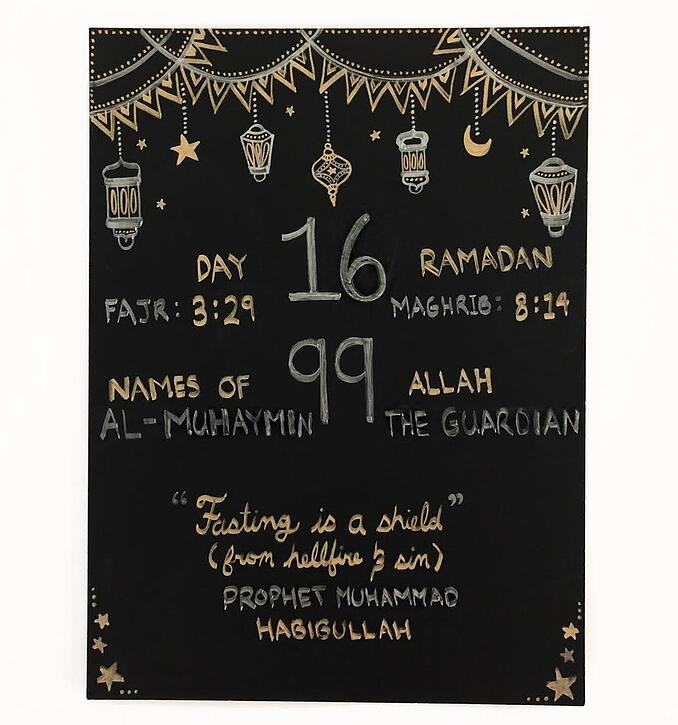 DAY 16 RAMADAN
FAJR: 3:29 MAGHRIB: 8:14
99
NAMES OF ALLAH
AL-MUHAYMIN THE GUARDIAN
“Fasting is a shield”
(from hellfire & sin)
PROPHET MUHAMMAD
HABIBULLAH